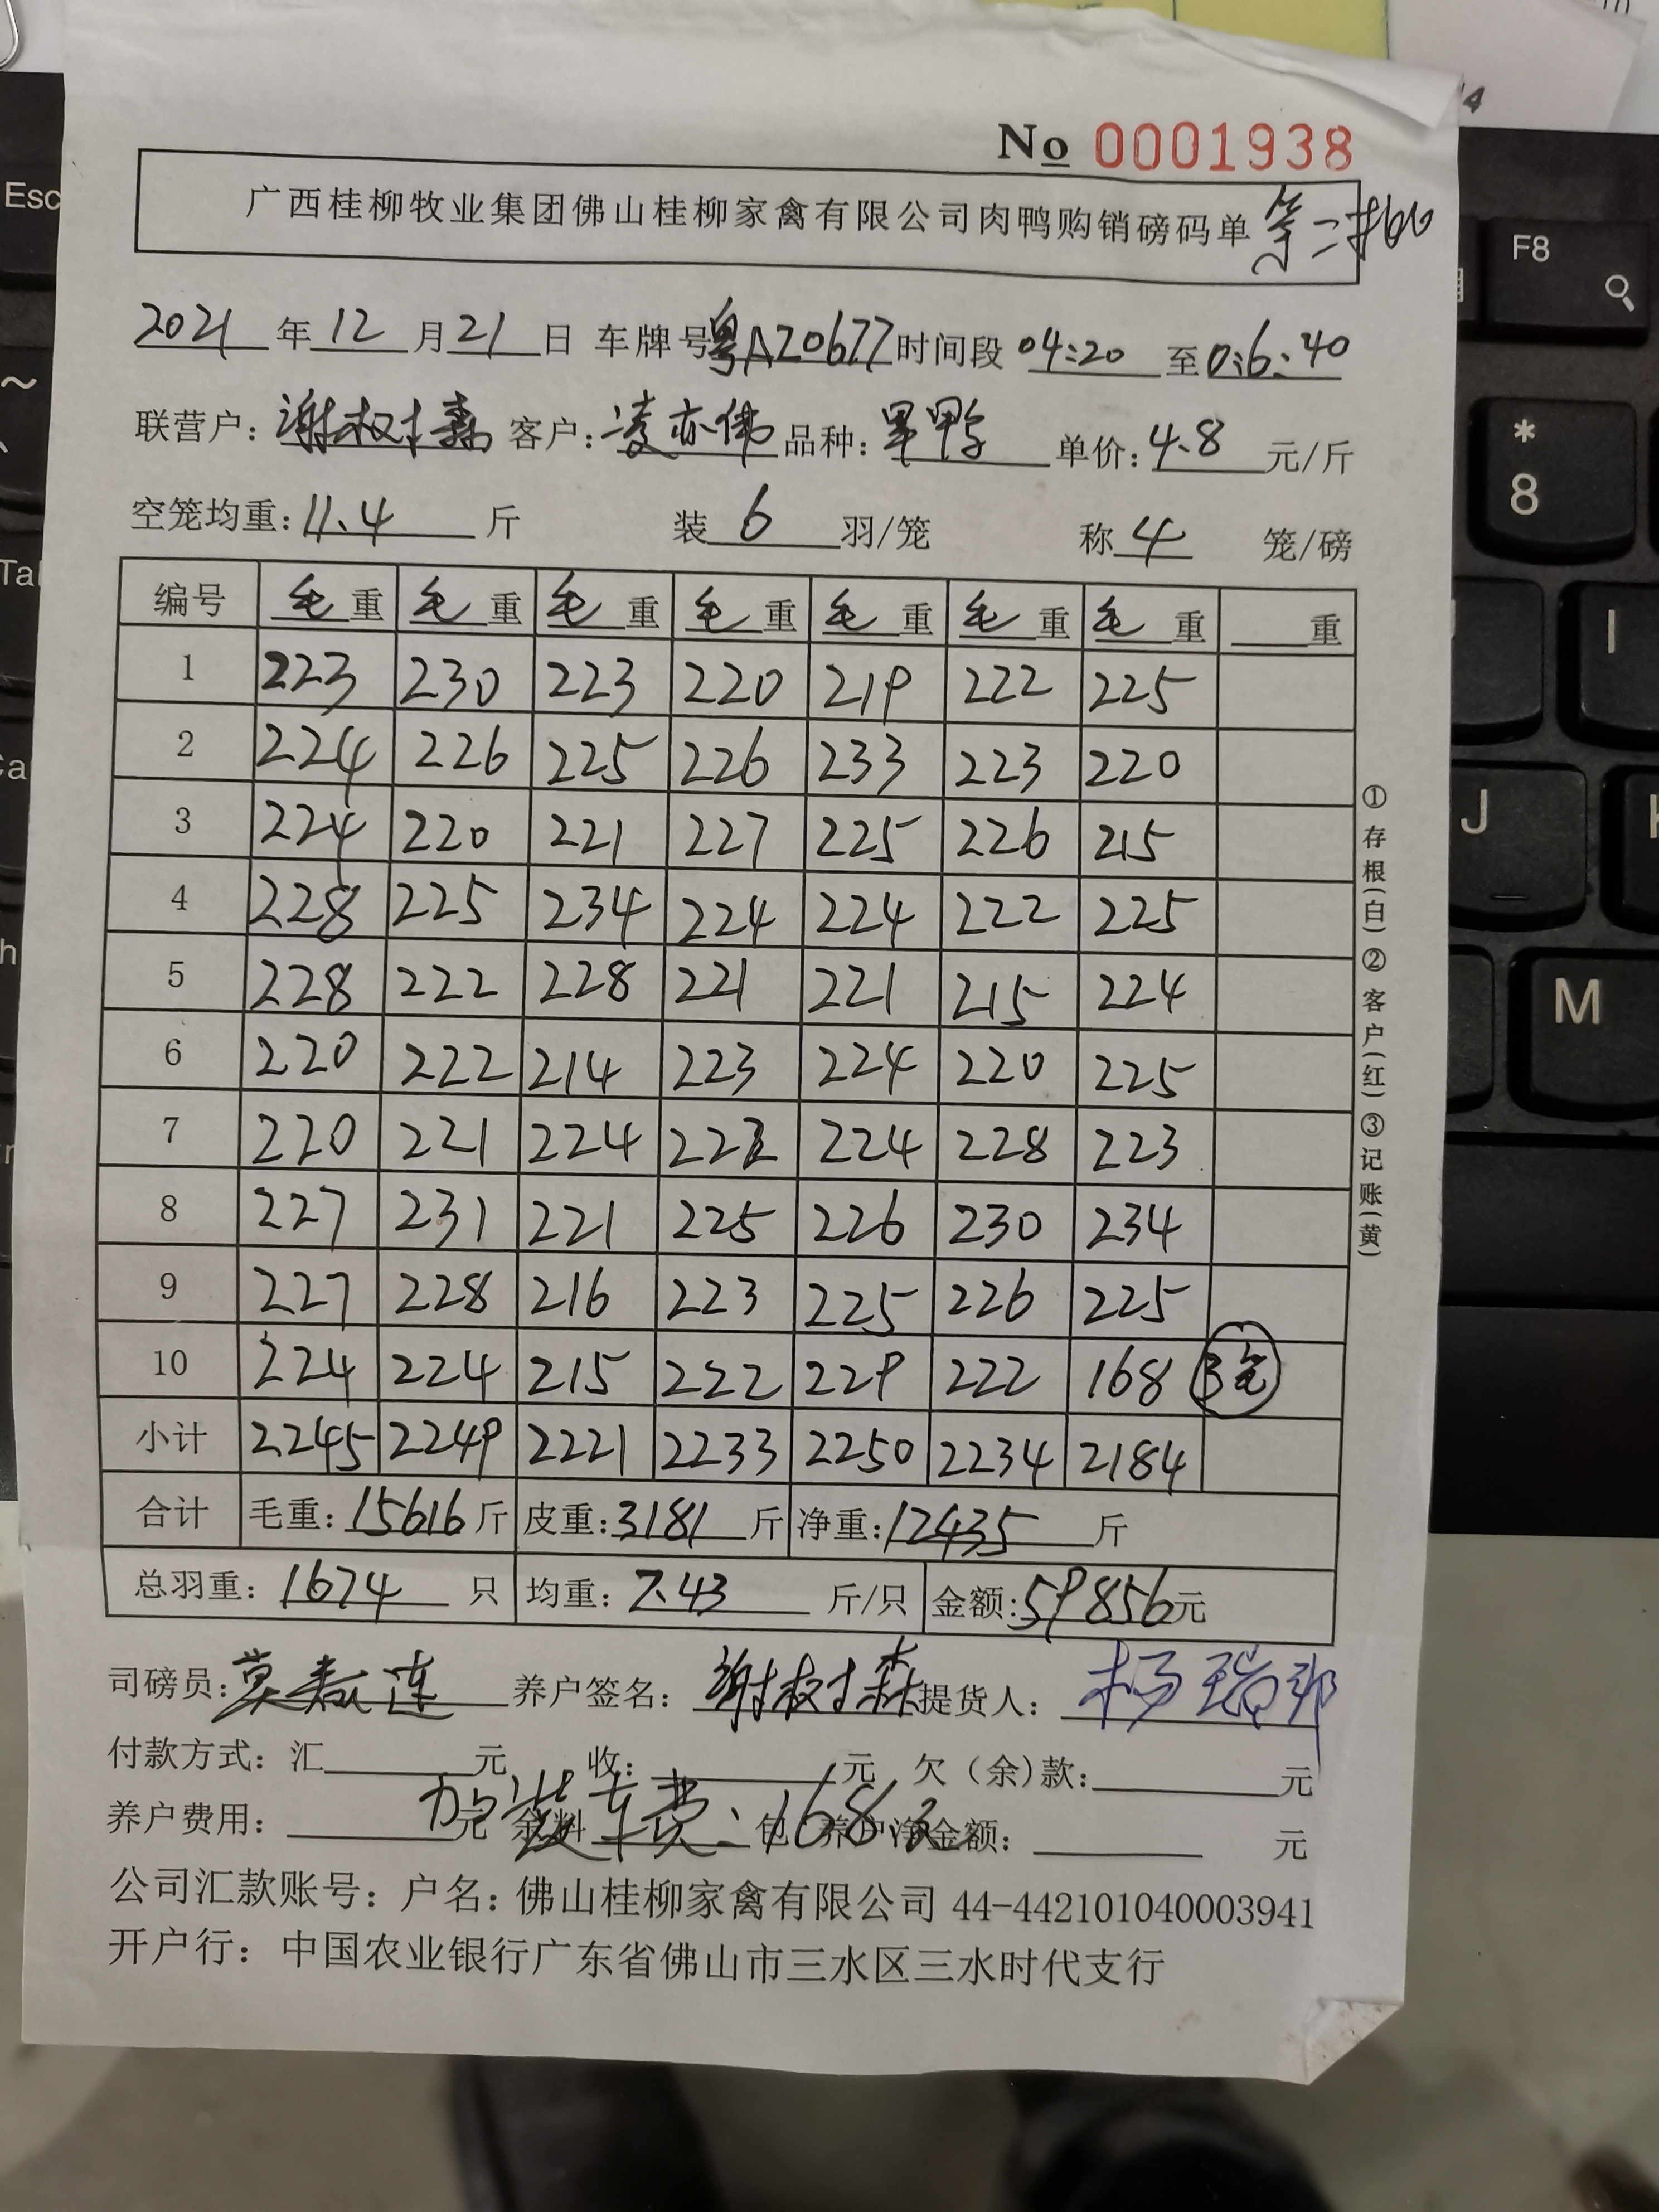 No 0001938
广西桂柳牧业集团佛山桂柳家禽有限公司肉鸭购销磅码单 第二拼
2021年12月21日 车牌号粤AZ0677时间段04:20至06:40
联营户:谢权森 客户:凌亦伟 品种:单鸭 单价:4.8元/斤
空笼均重:11.4斤 装6羽/笼 称4笼/磅
编号 毛重 毛重 毛重 毛重 毛重 毛重 毛重 重
1 223 230 223 220 219 222 225
2 224 226 225 226 233 223 220
3 224 220 221 227 225 226 215
4 228 225 234 224 224 222 225
5 228 222 228 221 221 215 224
6 220 222 214 223 224 220 225
7 220 221 224 222 224 228 223
8 227 231 221 225 226 230 234
9 227 228 216 223 225 226 225
10 224 224 215 222 229 222 168 3笼
小计 2245 2249 2221 2233 2250 2234 2184
合计 毛重:15616斤 皮重:3181斤 净重:12435斤
总羽重:1674只 均重:7.43斤/只 金额:59856元
司磅员:莫连 养户签名:谢权森 提货人:杨瑞邦
付款方式:汇 元 收: 元 欠(余)款: 元
加装车费:168元
养户费用: 元 余料 包 养户净金额: 元
公司汇款账号:户名:佛山桂柳家禽有限公司 44-442101040003941
开户行:中国农业银行广东省佛山市三水区三水时代支行
①存根(白)②客户(红)③记账(黄)
Esc
F8
*
8
I
J
M